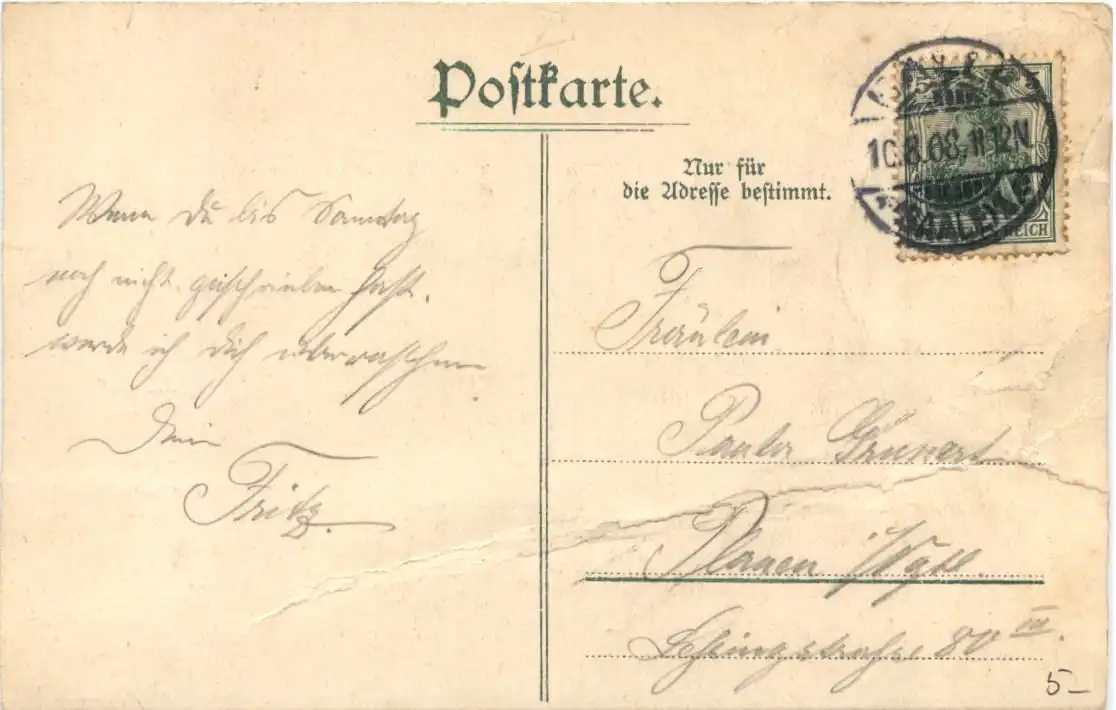 Postkarte.
Nur für
die Adresse bestimmt.
10.8.08. 11-12N
REICH
Wenn Du bis Samstag
noch nicht geschrieben hast,
werde ich Dich überraschen.
Dein
Fritz.
Fräulein
Paula Grunert
Plauen i/Vgtl.
Lessingstrasse 80 III.
5-